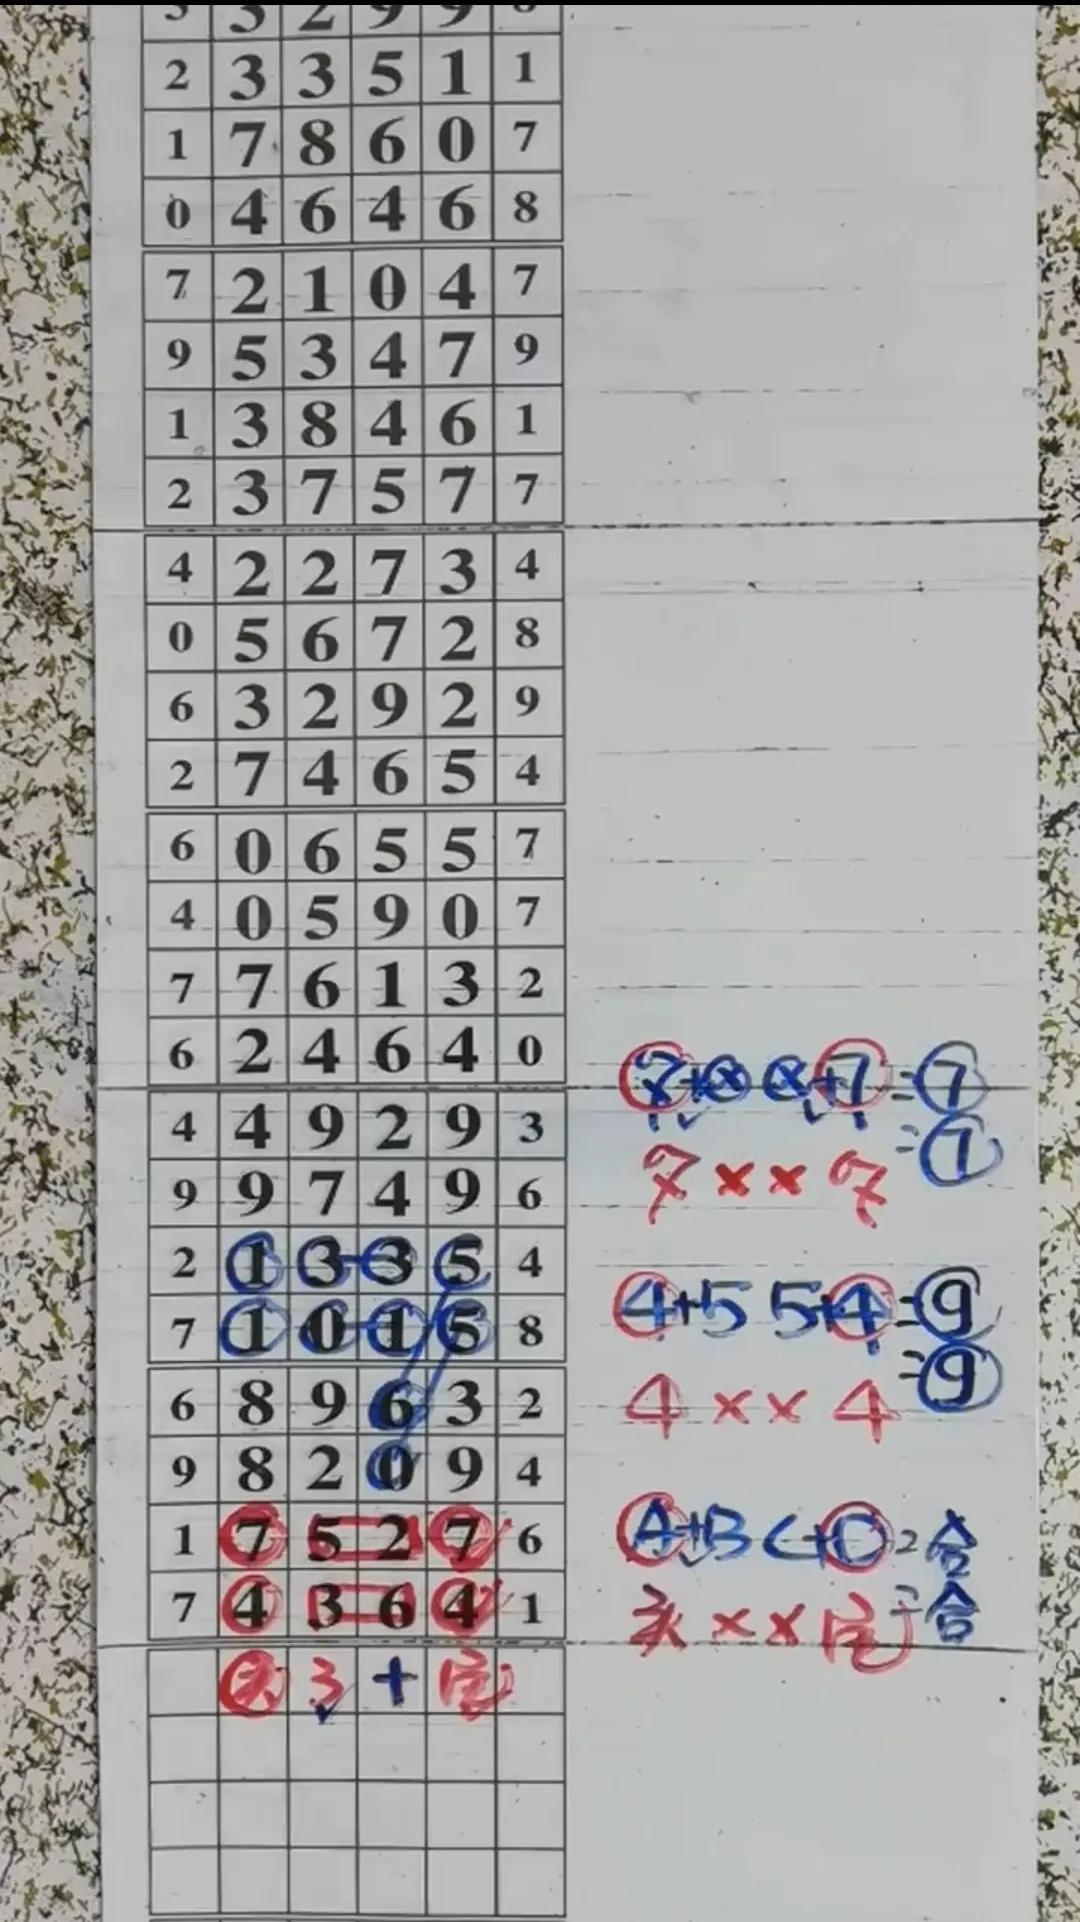 3 2 9 9
2 3 3 5 1 1
1 7 8 6 0 7
0 4 6 4 6 8
7 2 1 0 4 7
9 5 3 4 7 9
1 3 8 4 6 1
2 3 7 5 7 7
4 2 2 7 3 4
0 5 6 7 2 8
6 3 2 9 2 9
2 7 4 6 5 4
6 0 6 5 5 7
4 0 5 9 0 7
7 7 6 1 3 2
6 2 4 6 4 0
4 4 9 2 9 3
9 9 7 4 9 6
2 1 3 3 5 4
7 1 0 1 5 8
6 8 9 6 3 2
9 8 2 0 9 4
1 7 5 2 7 6
7 4 3 6 4 1
头 3 +
=7
7 × × 7
4+5 5+4=9
=9
4 × × 4
A+B C+D=合
头 × × =合